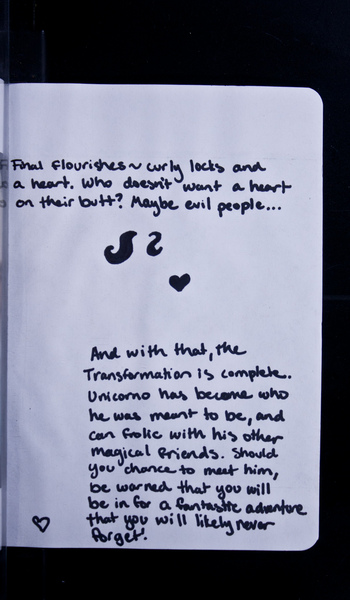 Final flourishes~ curly locks and
a heart. Who doesn't want a heart
on their butt? Maybe evil people...
And with that, the
Transformation is complete.
Unicorno has become who
he was meant to be, and
can frolic with his other
magical friends. Should
you chance to meet him,
be warned that you will
be in for a fantastic adventure
that you will likely never
forget!